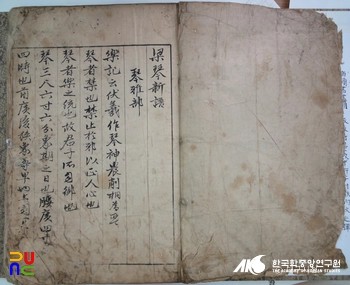 梁琴新譜
琴雅部
樂記云伏羲作琴神農削桐爲
琴者禁也禁止於邪以正人心也
琴者樂之統也故君子所也
琴三尺六寸六分象期之日也腰廣四
四時也前廣後狹象尊卑也上
한국학중앙연구원
THE ACADEMY OF KOREAN STUDIES
AKS